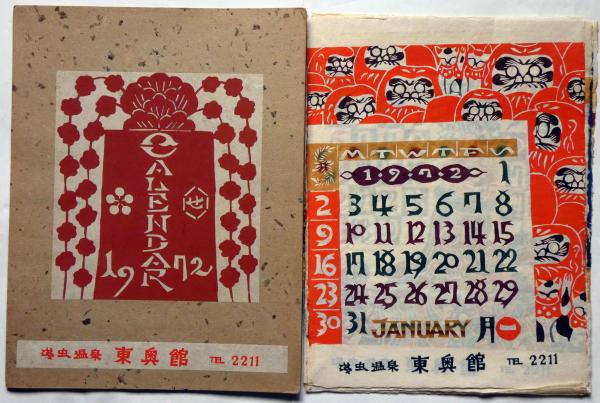 CALENDAR
1972
温泉 東奥館 TEL 2211
S M T W T F S
1972
1
2 3 4 5 6 7 8
9 10 11 12 13 14 15
16 17 18 19 20 21 22
23 24 25 26 27 28 29
30 31 JANUARY 月一
温泉 東奥館 TEL 2211